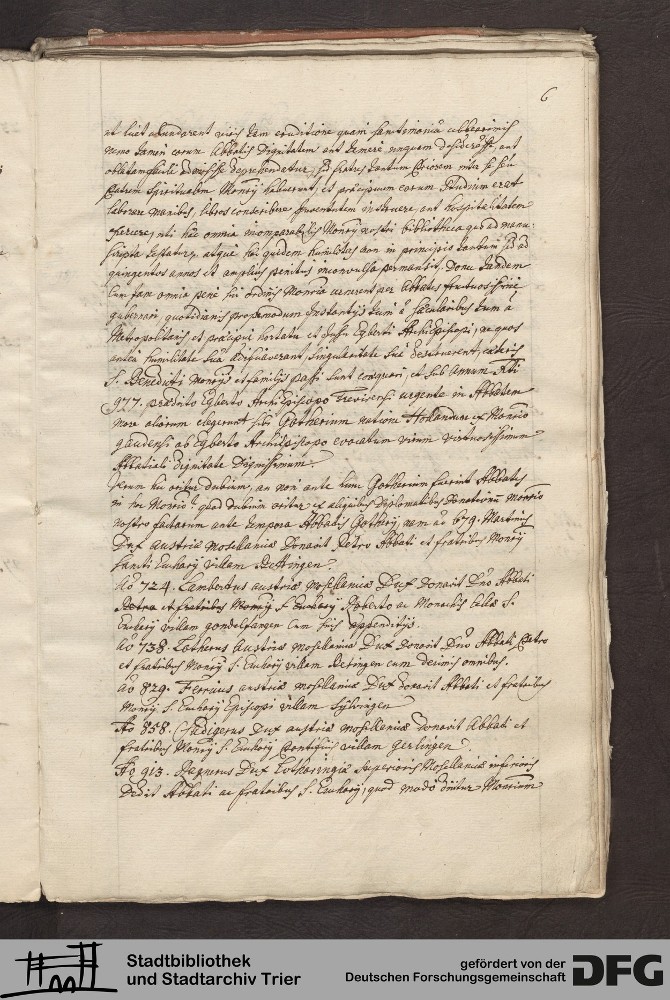 6
et licet abundarent viris tam eruditione quam sanctimonia celeberrimis
nemo tamen eorum Abbatis Dignitatem aut temere unquam desiderasse, aut
oblatam facile admisisse deprehendatur, sed fratres tantum Priorem inter se seu
Patrem spiritualem Monrij habuerunt, et praecipuum eorum studium erat
laborare manibus, libros conscribere, Juventutem instruere, aut hospitalitatem
exercere, uti haec omnia incomparabilis Monrij nostri bibliotheca quoad manu=
scripta testatur, atque haec quidem humilitas non in principio tantum sed ad
quingentos annos et amplius penitus inconvulsa permansit, Donec tandem
Cum jam omnia pene sui ordinis Monria viverent per Abbates
gubernari quotidianis propemodum Instantijs tum à saecularibus tum à
Metropolitanis et praecipue hortatu et Egberti Archiepiscopi, ne quos
antea humilitate sua adaequaverant, singularitate sua desererent, caeteris
S. Benedicti Monrijs et familijs passi sunt, et sub annum Xti
977. praedicto Egberto Archiepiscopo Trevirensi urgente in Abbatem
more aliorum elegerunt sibi Gotherium natione Hollandum ex Monrio
gandensi ab Egberto Archiepiscopo evocatum virum virtuosissimum
Abbatiali dignitate Dignissimum.
Verum hic oritur dubium, an non ante hunc Gotherium fuerint Abbates
in hoc Monrio? quod dubium oritur ex aliquibus Diplomatibus Donationum Monrio
nostro factarum ante tempora Abbatis Gotherij, nam aô 679. Martinus
Dux austriae mosellanicae Donavit Petro Abbati et fratribus Monrij
sancti Eucharij villam Bettingen.
Aô 724. Lambertus austriae mosellanicae Dux donavit Dno Abbati
Petro et fratribus Monrij S. Eucharij Roberto ac Monachis cellae S.
Eucharij villam gondelfangen cum suis appenditijs.
aô 738. Lotherus austriae mosellanicae Dux donavit Dno Abbati Petro
et fratribus Monrij S. Eucharij villam Retingen cum decimis omnibus.
aô 829. Ferrius austriae mosellanicae Dux donavit Abbati et fratribus
Monrij S. Eucharij Episcopi villam Sylvingen
Aô 858. Hadigerus Dux austriae mosellanicae donavit Abbati et
fratribus Monrij S. Eucharij Pontificis villam gerlingen.
Aô 913. Ragnerus Dux Lotharingiae superioris Mosellanicae inferioris
Dedit Abbati ac fratribus S. Eucharij, quod modo dicitur Monrium
Stadtbibliothek
und Stadtarchiv Trier
gefördert von der
Deutschen Forschungsgemeinschaft
DFG